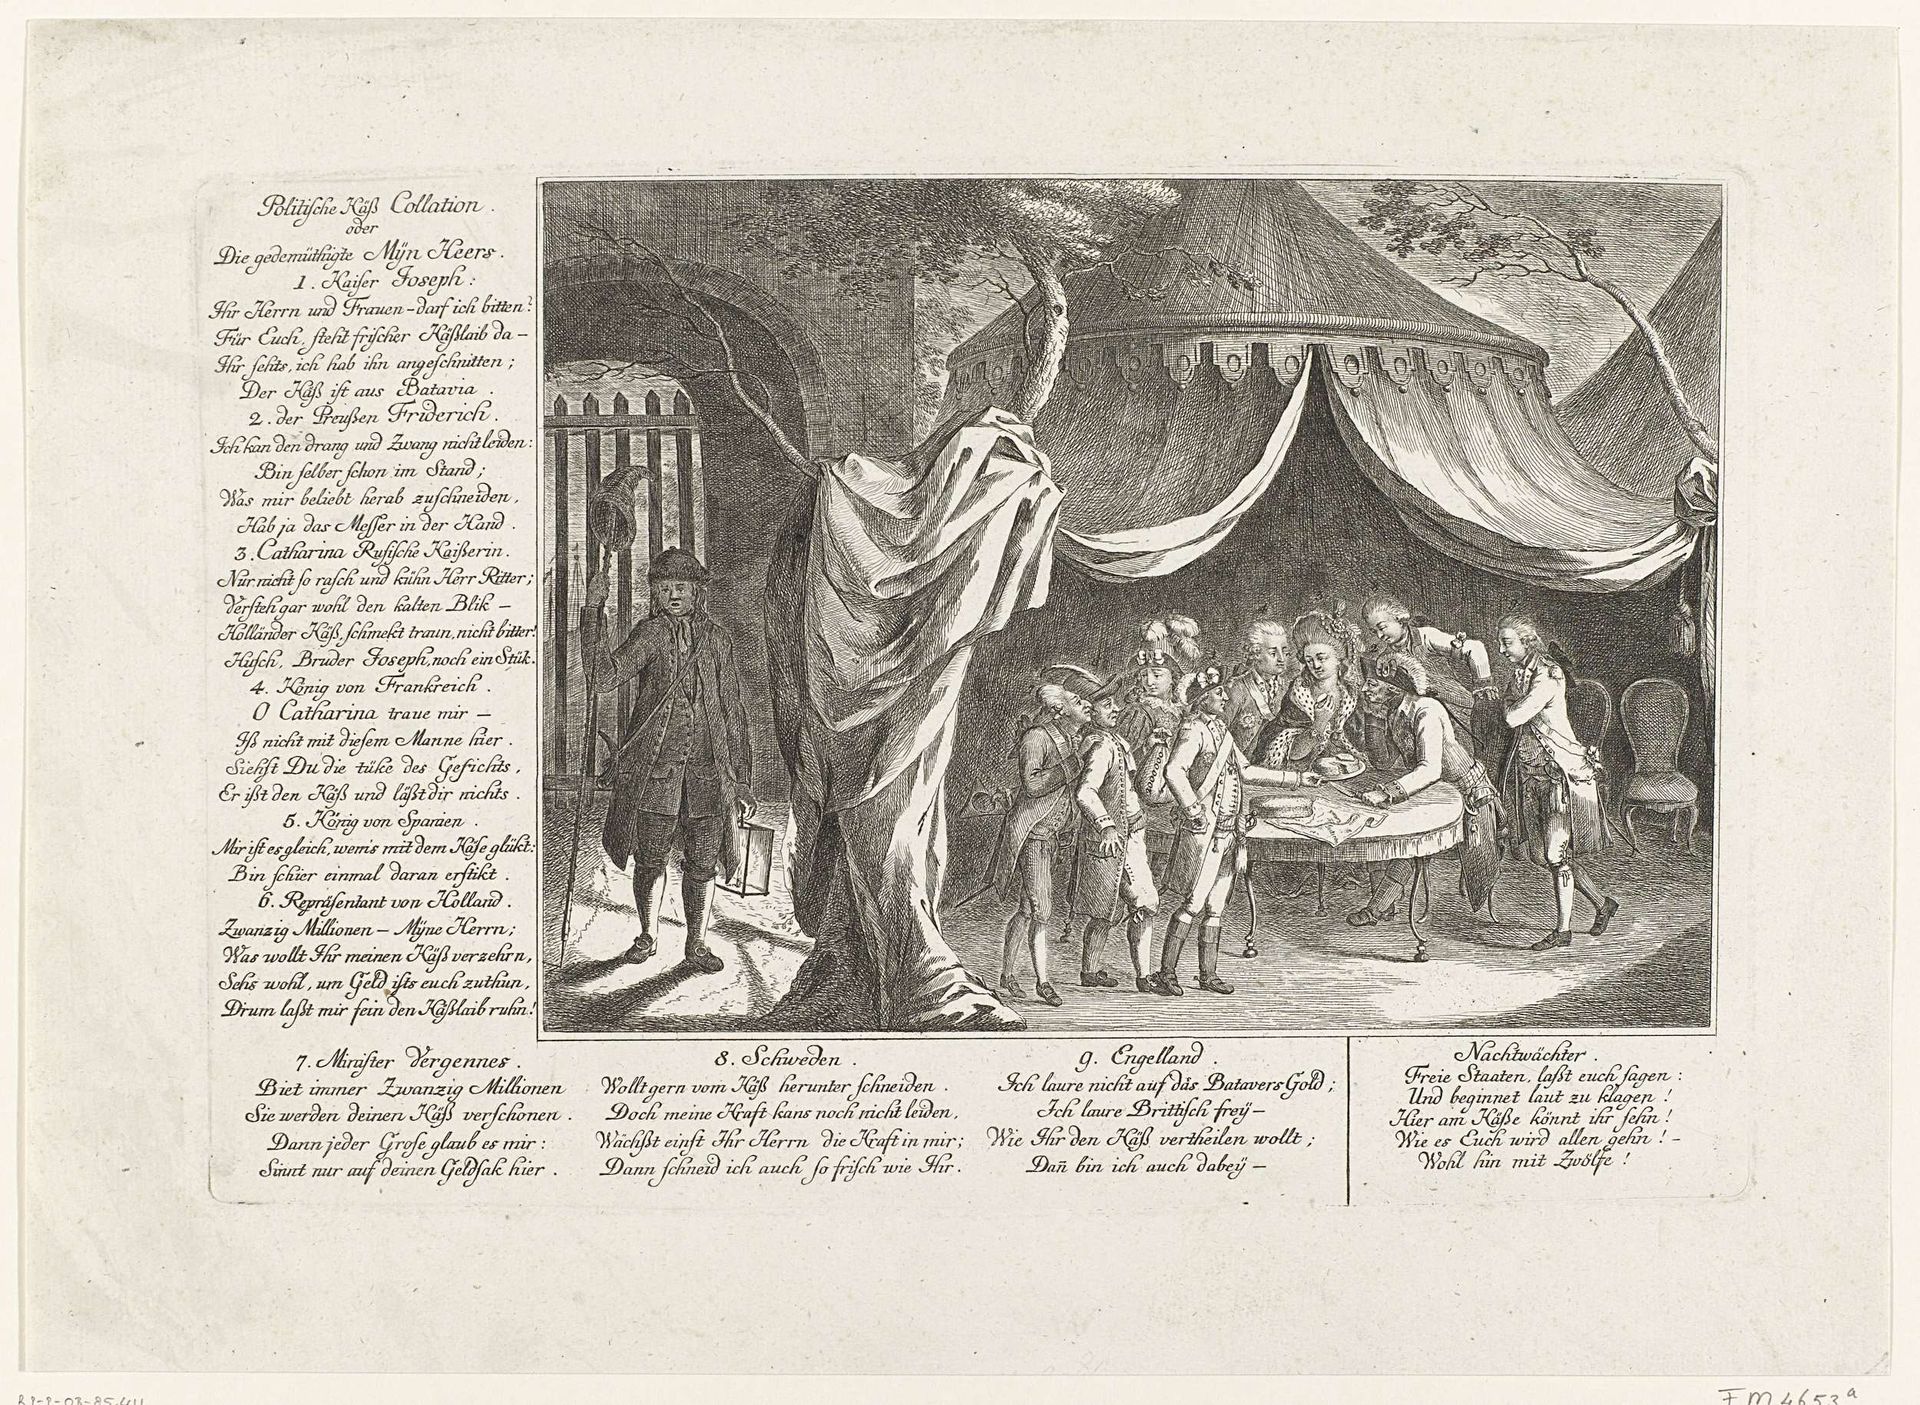 Politische Käß Collation.
oder
Die gedemüthigte Mÿn Heers.
1. Kaiser Joseph:
Ihr Herrn und Frauen - darf ich bitten?
Für Euch, steht frischer Käßlaib da -
Ihr sehts, ich hab ihn angeschnitten;
Der Käß ist aus Batavia.
2. der Preußen Friderich.
Ich kan den drang und Zwang nicht leiden:
Bin selber schon im Stand;
Was mir beliebt herab zuschneiden,
Hab ja das Messer in der Hand.
3. Catharina Rußische Kaißerin.
Nur nicht so rasch und kühn Herr Ritter;
Versteh gar wohl den kalten Blik -
Holländer Käß, schmekt traun, nicht bitter!
Husch, Bruder Joseph, noch ein Stük.
4. König von Frankreich.
O Catharina traue mir -
Iß nicht mit diesem Manne hier.
Siehst Du die tüke des Gesichts,
Er ißt den Käß und läßt dir nichts.
5. König von Spanien.
Mir ist es gleich, wenns mit dem Käse glükt:
Bin schier einmal daran erstikt.
6. Repräsentant von Holland.
Zwanzig Millionen - Mÿne Herrn;
Was wollt Ihr meinen Käß verzehrn,
Sehs wohl, um Geld ists euch zuthun,
Drum laßt mir fein den Käßlaib ruhn!
7. Minister Vergennes.
Biet immer Zwanzig Millionen
Sie werden deinen Käß verschonen.
Dann jeder Grose glaub es mir:
Sinnt nur auf deinen Geldsak hier.
8. Schweden.
Wollt gern vom Käß herunter schneiden.
Doch meine Kraft kans noch nicht leiden,
Wächßt einst Ihr Herrn die Kraft in mir;
Dann schneid ich auch so frisch wie Ihr.
9. Engelland.
Ich laure nicht auf das Batavers Gold;
Ich laure Brittisch freÿ -
Wie Ihr den Käß vertheilen wollt;
Dañ bin ich auch dabeÿ -
Nachtwächter.
Freie Staaten, laßt euch sagen:
Und beginnet laut zu klagen!
Hier am Käße könnt ihr sehn!
Wie es Euch wird allen gehn! -
Wohl hin mit Zwölfe!
FM 4653a